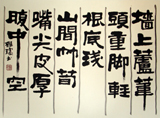 墙上蘆葦
頭重脚輕
根底浅
山間竹笋
嘴尖皮厚
腹中空